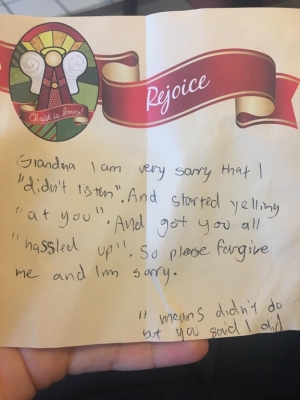 Christ is born!
Rejoice
Grandma I am very sorry that I
"didn't listen". And started yelling
"at you". And got you all
"hassled up". So please forgive
me and I'm sorry.
" means didn't do
but you said I did